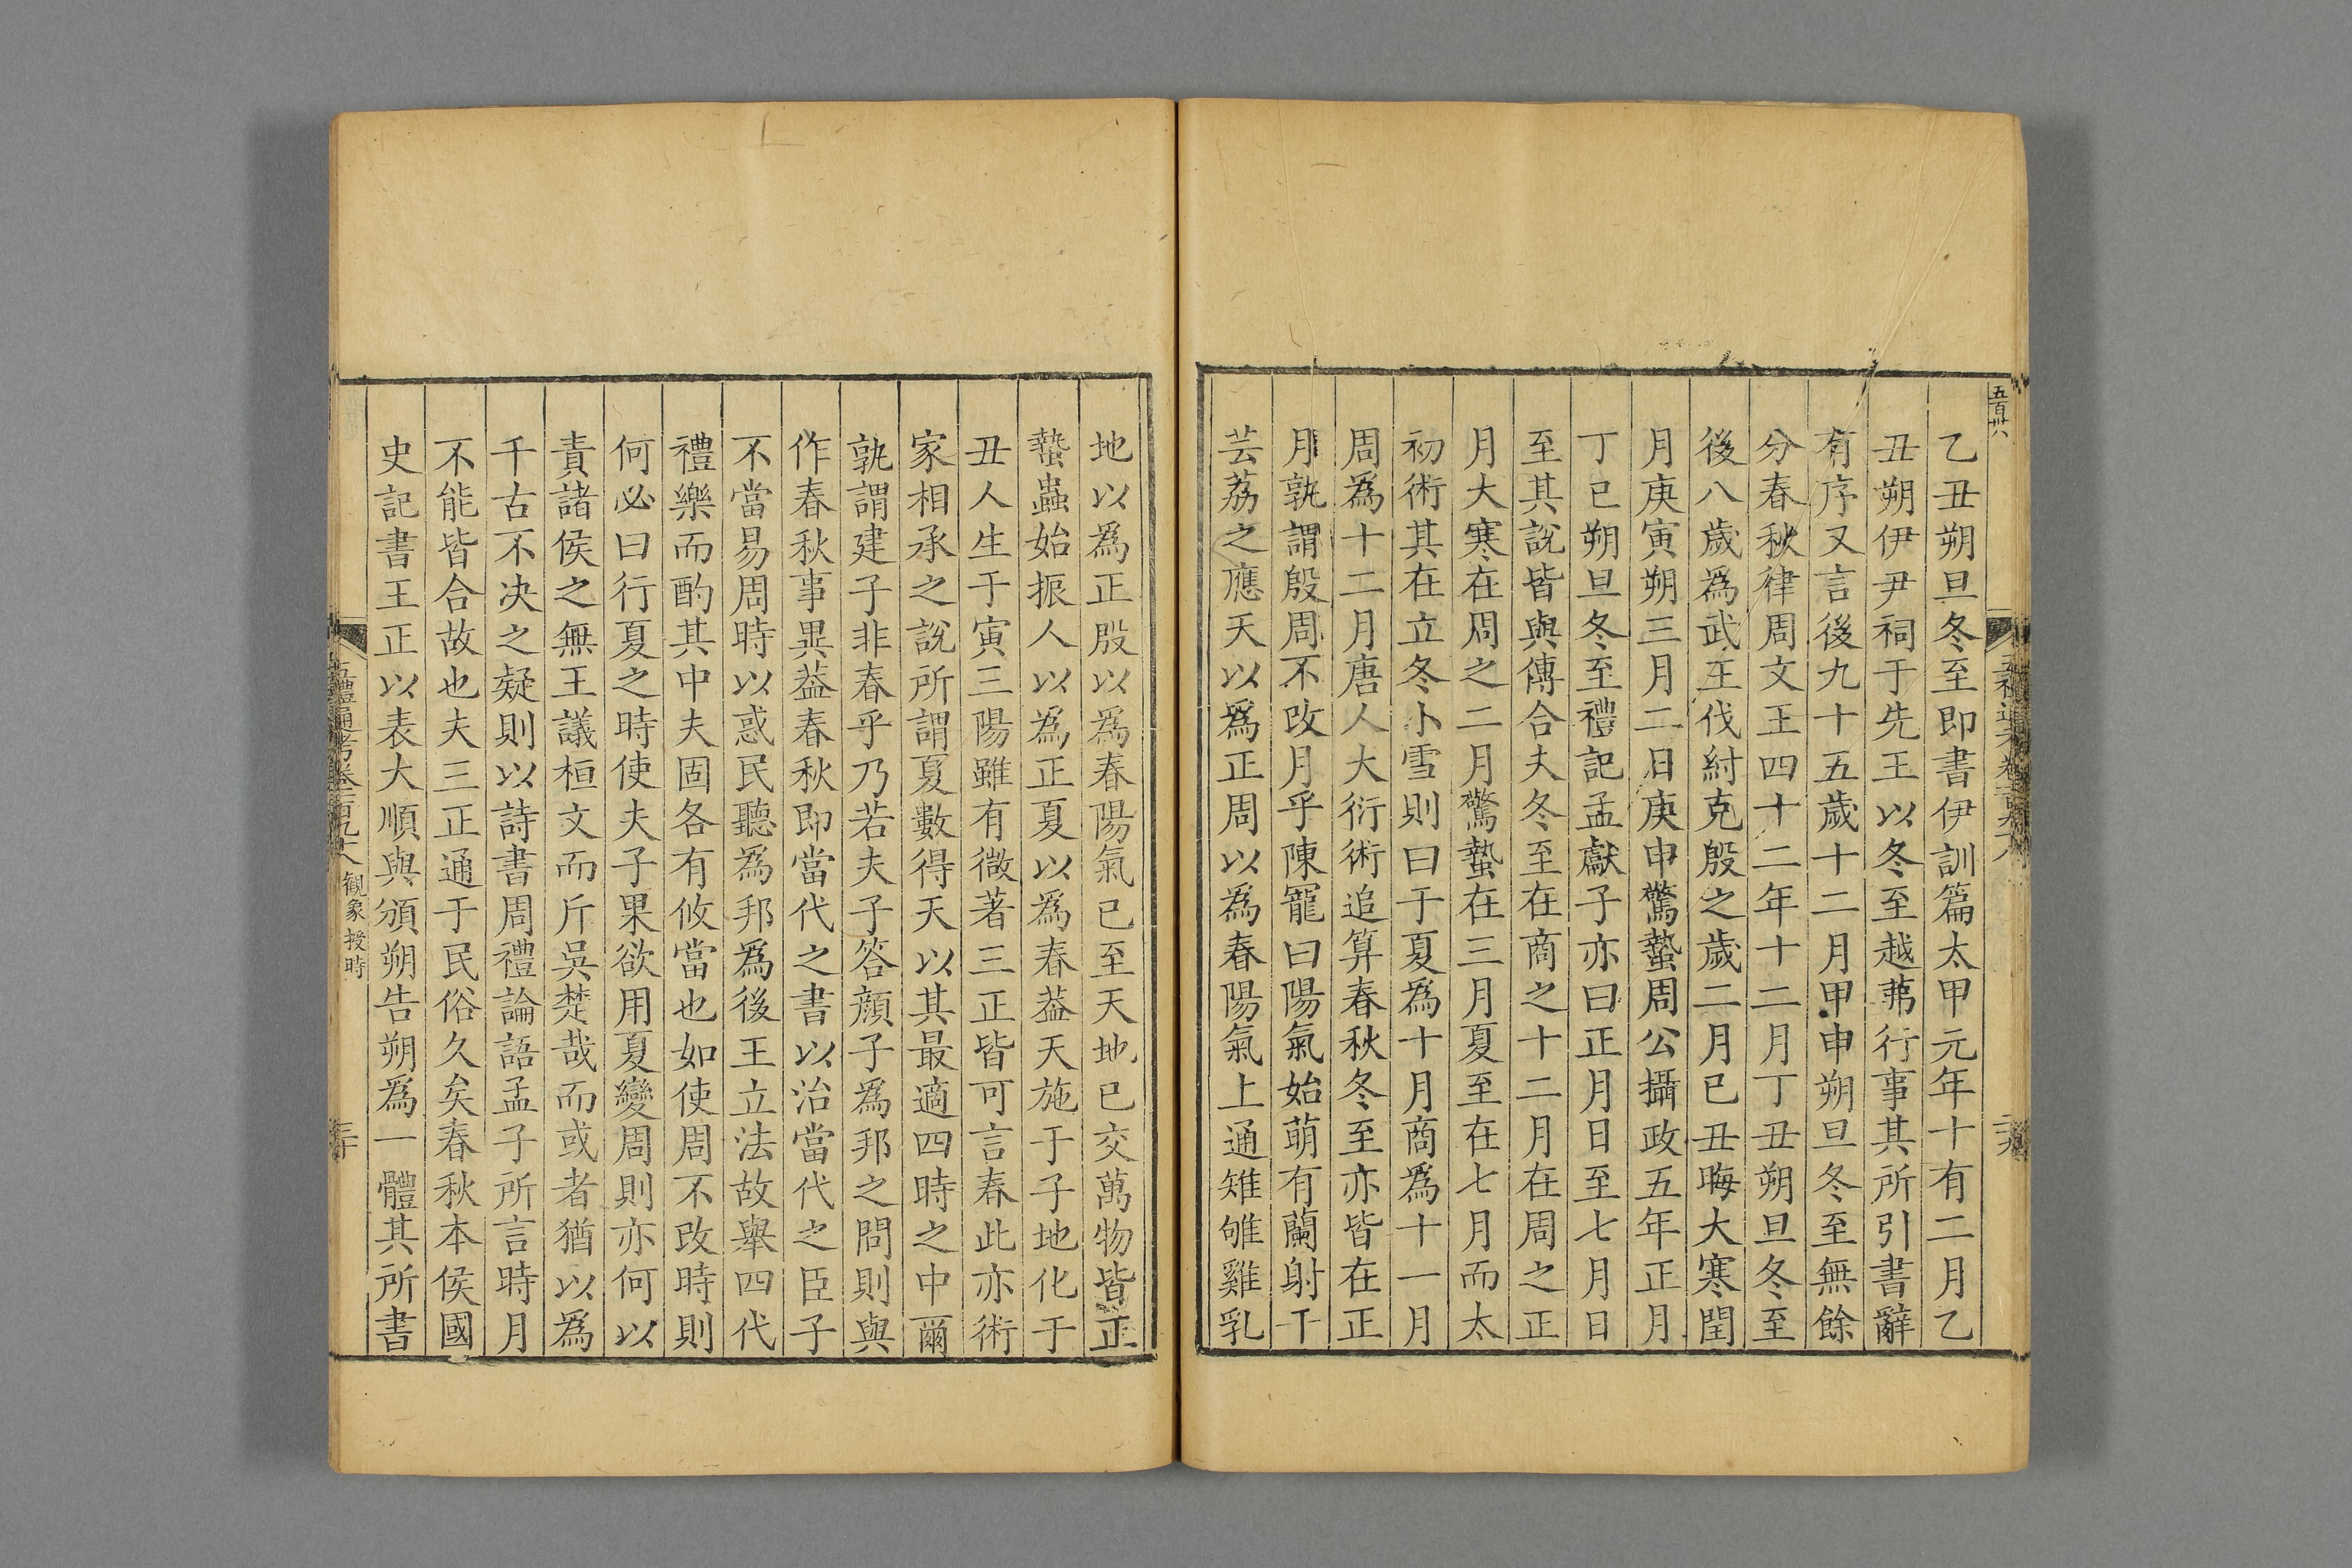 五百卅六
乙丑朔旦冬至即書伊訓篇太甲元年十有二月乙
丑朔伊尹祠于先王以冬至越茀行事其所引書辭
有序又言後九十五歲十二月甲申朔旦冬至無餘
分春秋律周文王四十二年十二月丁丑朔旦冬至
後八歲爲武王伐紂克殷之歲二月已丑晦大寒閏
月庚寅朔三月二日庚申驚蟄周公攝政五年正月
丁已朔旦冬至禮記孟獻子亦曰正月日至七月日
至其說皆與傳合夫冬至在商之十二月在周之正
月大寒在周之二月驚蟄在三月夏至在七月而太
初術其在立冬小雪則曰于夏爲十月商爲十一月
周爲十二月唐人大衍術追算春秋冬至亦皆在正
月孰謂殷周不改月乎陳寵曰陽氣始萌有蘭射干
芸荔之應天以爲正周以爲春陽氣上通雉雊雞乳
地以爲正殷以爲春陽氣已至天地已交萬物皆正
蟄蟲始振人以爲正夏以爲春葢天施于子地化于
丑人生于寅三陽雖有微著三正皆可言春此亦術
家相承之說所謂夏數得天以其最適四時之中爾
孰謂建子非春乎乃若夫子答顔子爲邦之問則與
作春秋事異葢春秋即當代之書以治當代之臣子
不當易周時以惑民聽爲邦爲後王立法故舉四代
禮樂而酌其中夫固各有攸當也如使周不改時則
何必曰行夏之時使夫子果欲用夏變周則亦何以
責諸侯之無王議桓文而斥吳楚哉而或者猶以爲
千古不决之疑則以詩書周禮論語孟子所言時月
不能皆合故也夫三正通于民俗久矣春秋本侯國
史記書王正以表大順與頒朔告朔爲一體其所書
五禮通考卷一百九十八 觀象授時 三十